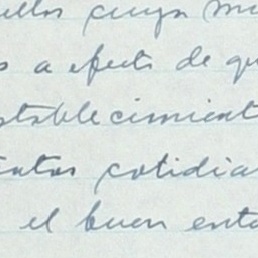 ellos cuya mi
s a efecto de qu
stablecimient
entos cotidia
el buen ento